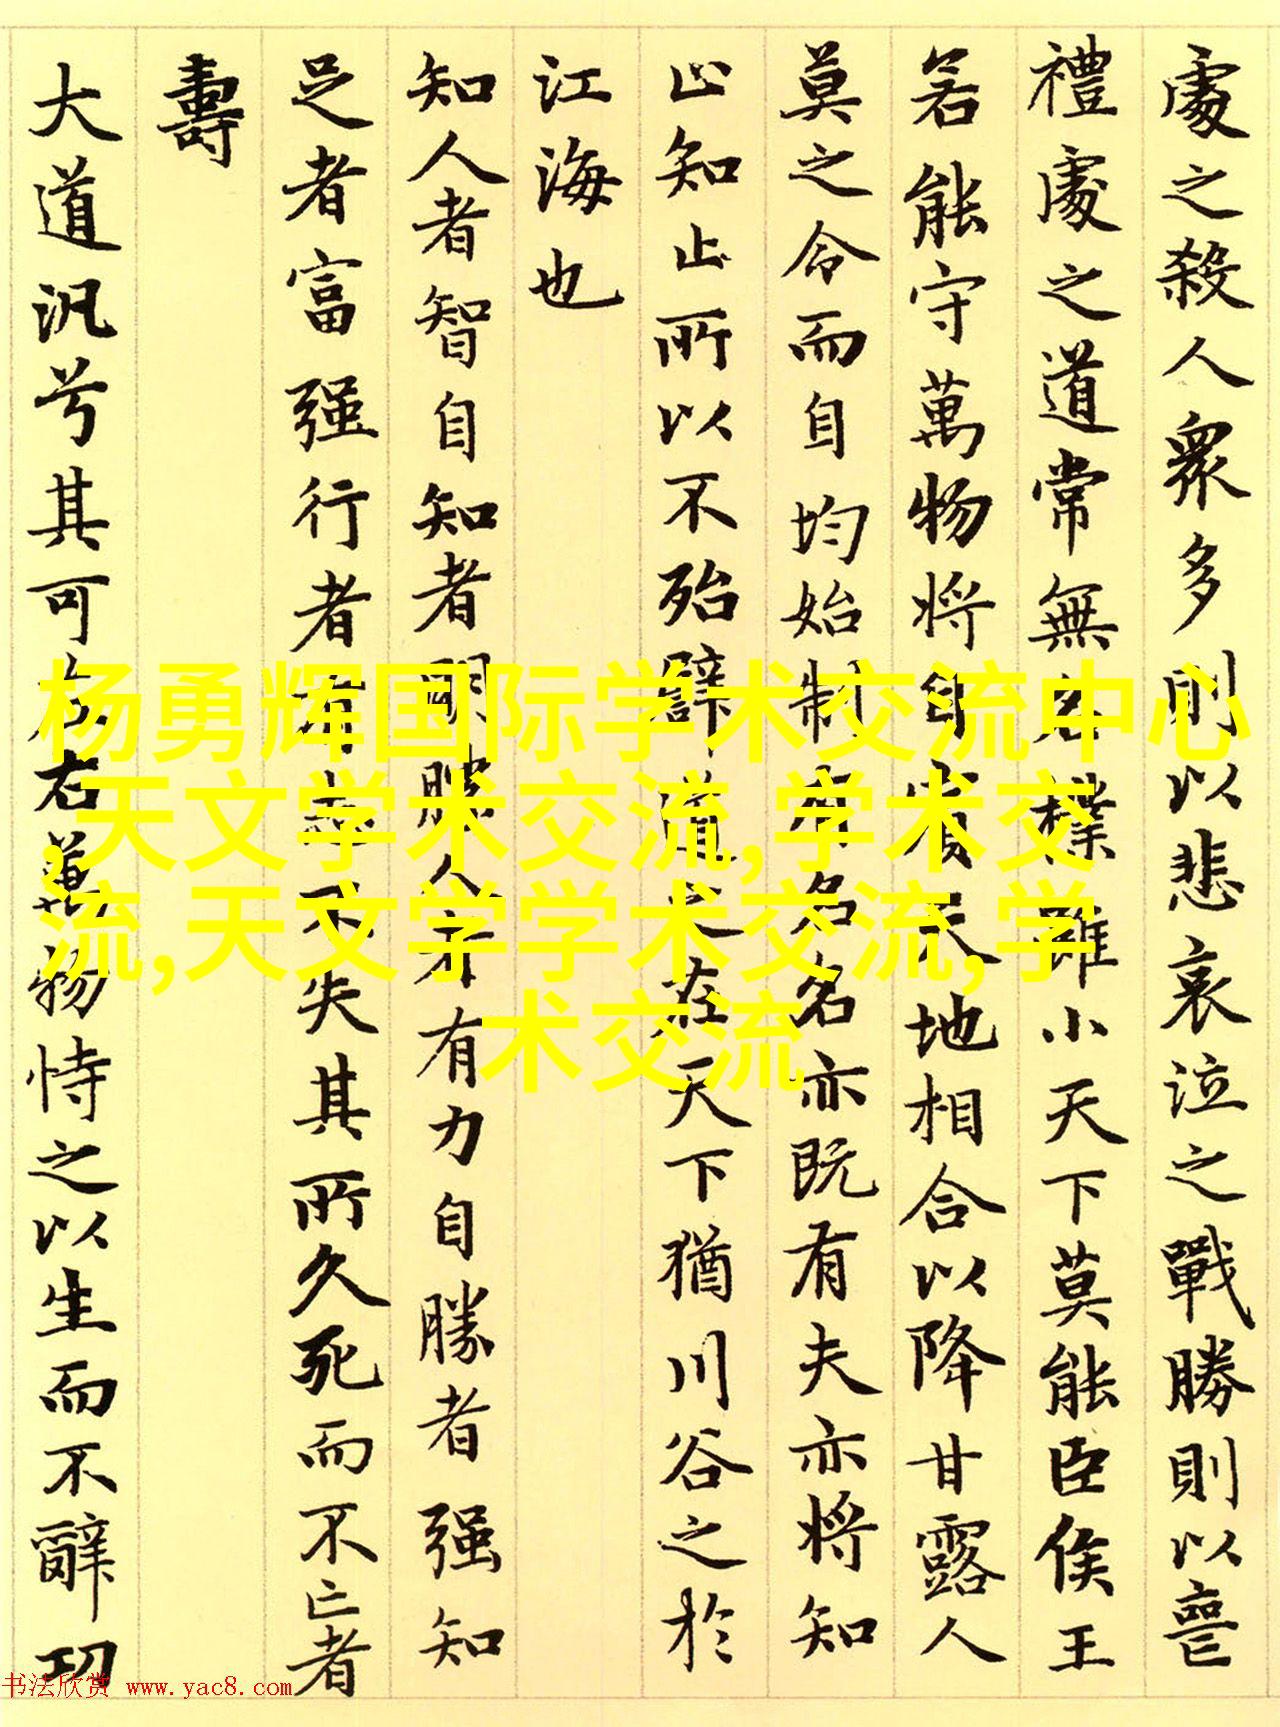 處之殺人衆多則以悲哀泣之戰勝則以喪
禮處之道常無名樸雖小天下莫能臣侯王
若能守萬物將自賓天地相合以降甘露人
莫之令而自均始制有名名亦既有夫亦將知
止知止所以不殆譬道之在天下猶川谷之於
江海也
知人者智自知者明勝人者有力自勝者强知
足者富强行者有志不失其所久死而不亡者
壽
大道汎兮其可左右萬物恃之以生而不辭功
杨勇辉国际学术交流中心
,天文学术交流,学术交
流,天文学学术交流,学
术交流
书法欣赏 www.yac8.com